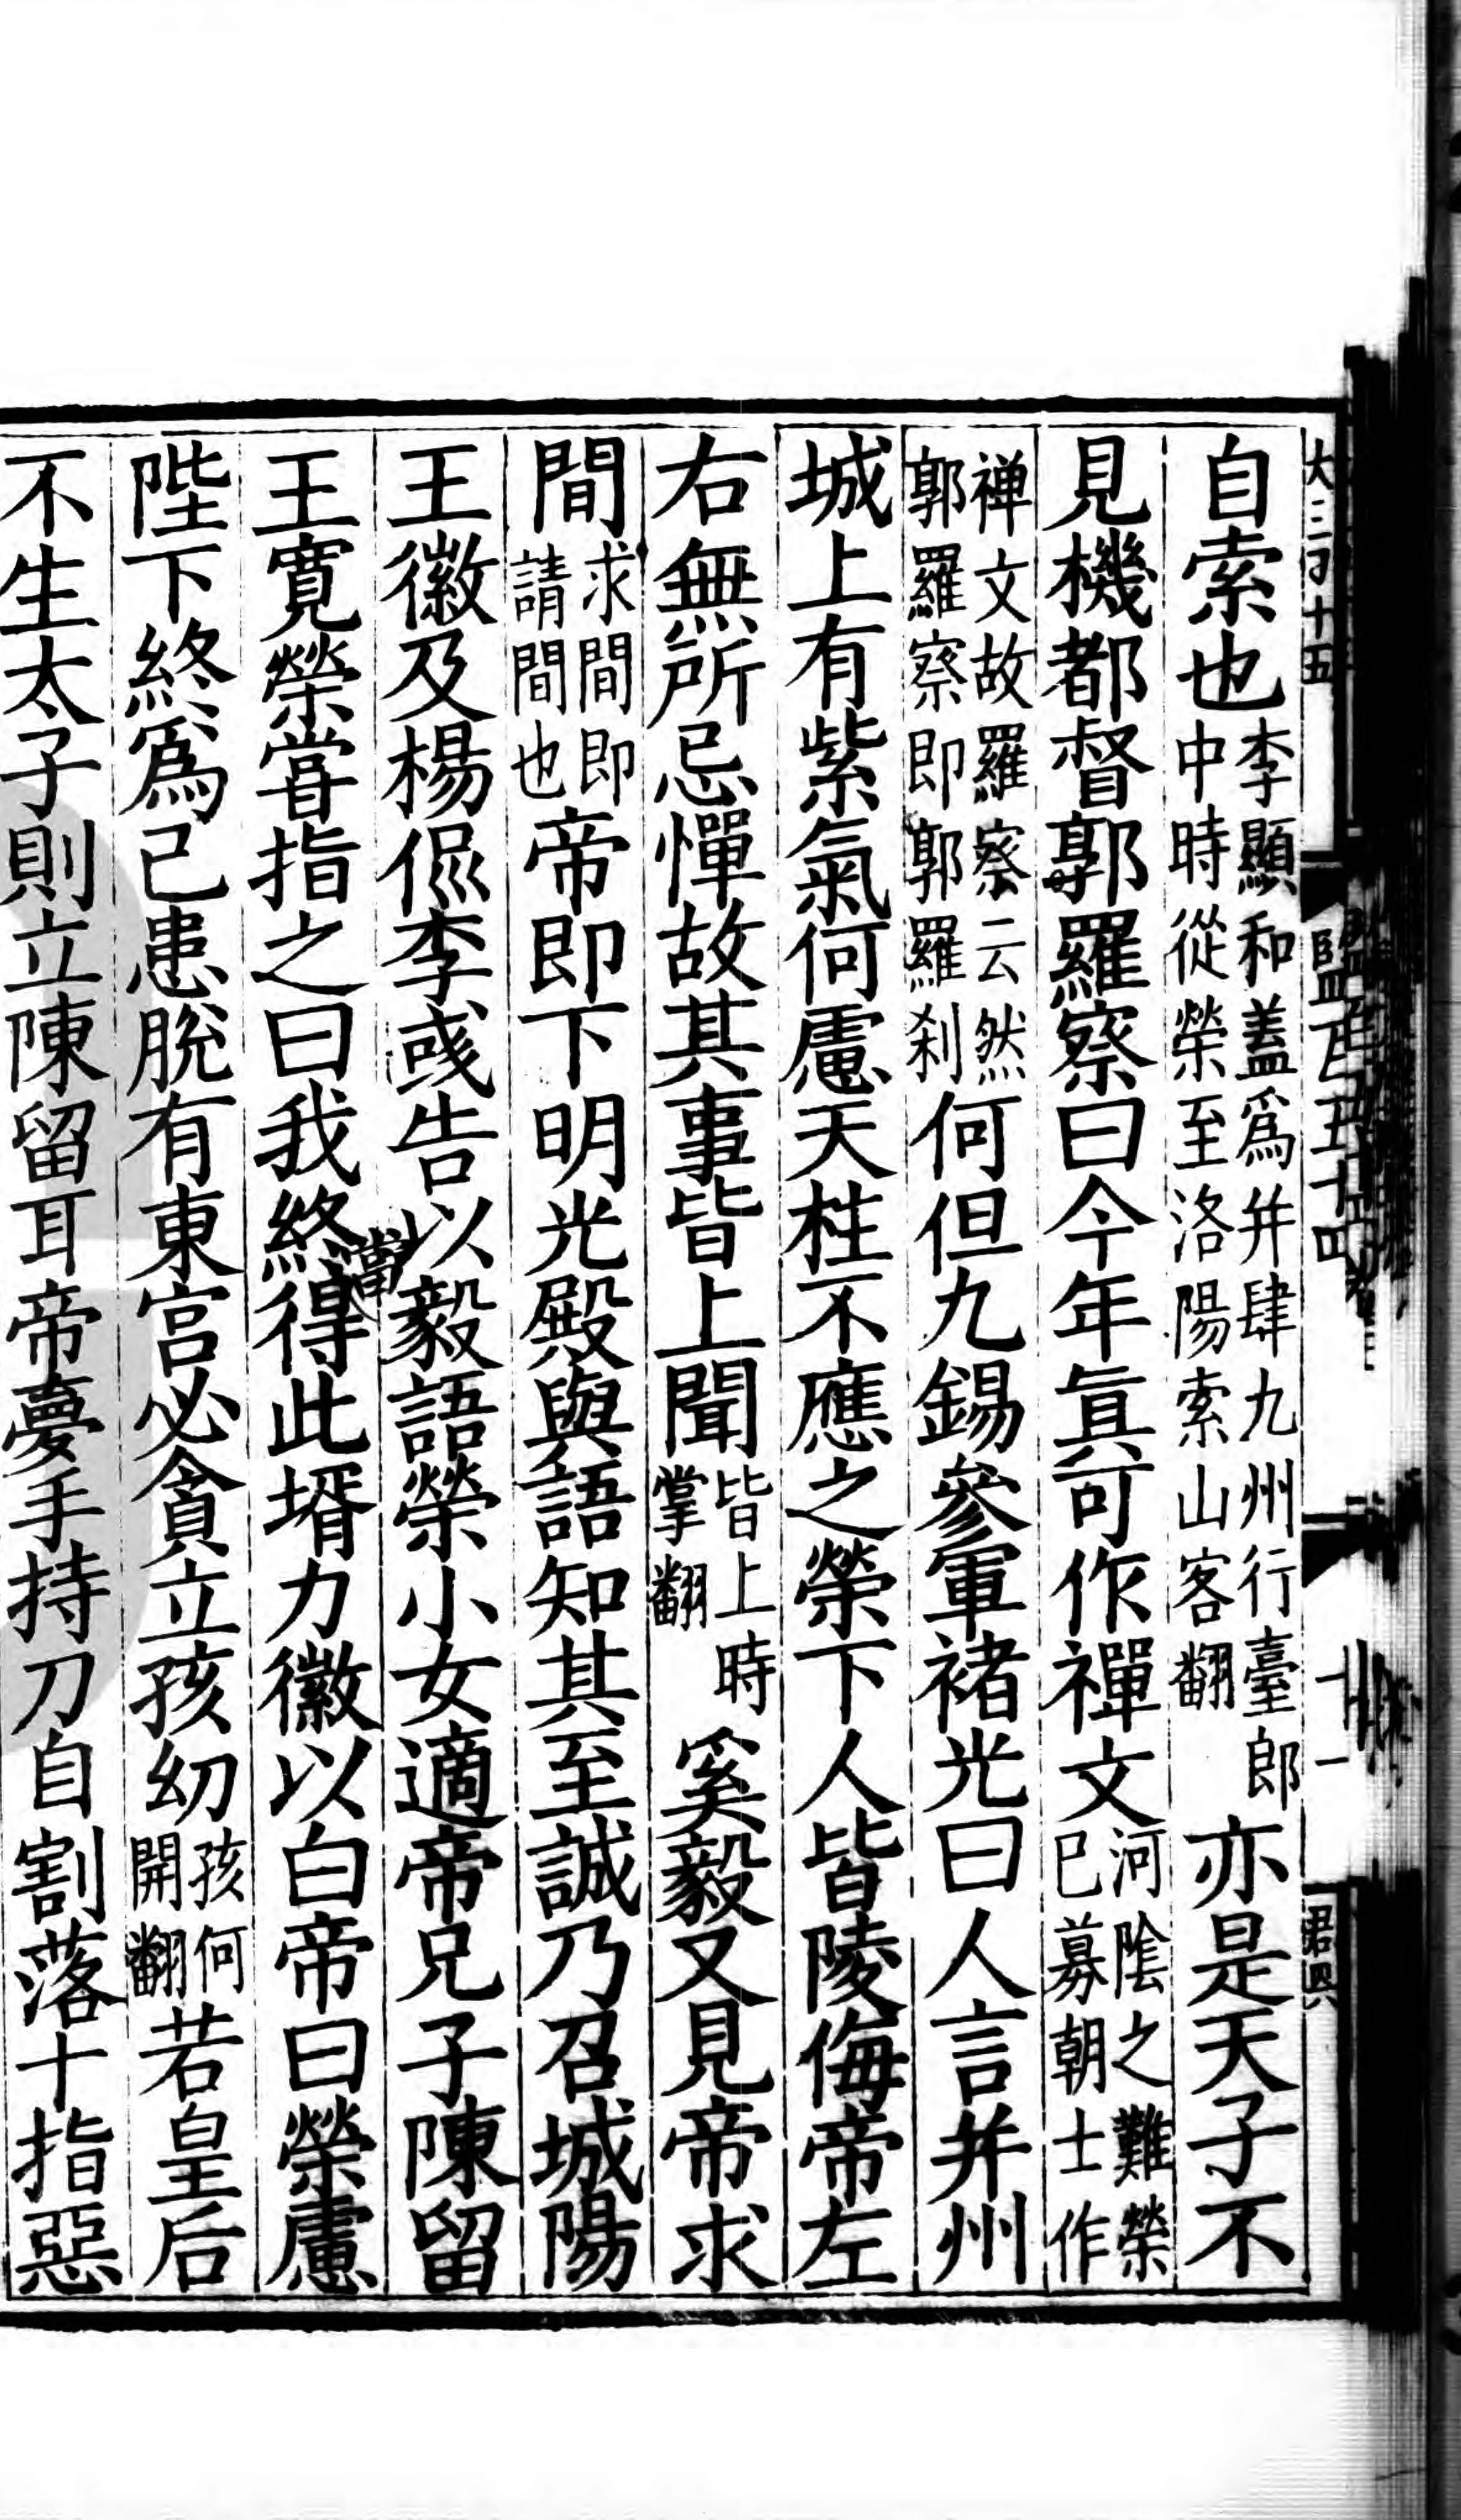 自索也李顯和蓋爲幷肆九州行臺郎中時從榮至洛陽索山客翻亦是天子不
見機都督郭羅察曰今年眞可作禪文河隂之難榮已募朝士作
禅文故羅察云然郭羅察即郭羅刹何但九錫參軍褚光曰人言幷州
城上有紫氣何慮天柱不應之榮下人皆陵侮帝左
右無所忌憚故其事皆上聞皆上時掌翻奚毅又見帝求
間求間即請間也帝即下明光殿與語知其至誠乃召城陽
王徽及楊侃李彧告以毅語榮小女適帝兄子陳留
王寛榮甞指之曰我終得此壻力徽以白帝曰榮慮
當
陛下終爲己患脫有東宮必貪立孩幼孩何開翻若皇后
不生太子則立陳留耳帝夢手持刀自割落十指惡